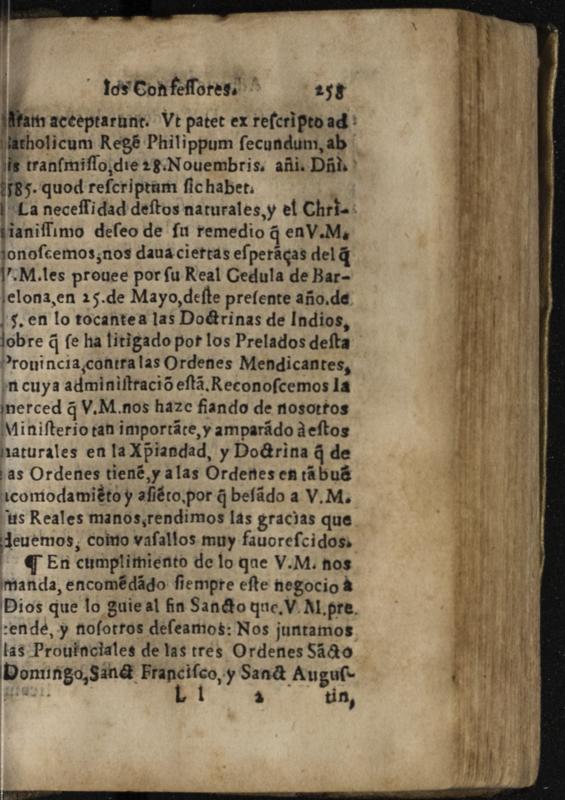 los Confessores. 258
acceptarunt. Vt patet ex rescripto ad
Regē Philippum secundum, ab
transmisso, die 28. Nouembris. añi. Dñi.
585. quod rescriptum sic habet.
La necessidad destos naturales, y el Chri-
ianissimo deseo de su remedio q̃ en V.M.
onoscemos, nos daua ciertas esperãças del q̃
V.M. les prouee por su Real Cedula de Bar-
elona, en 25. de Mayo, deste presente año. de
5. en lo tocante a las Doctrinas de Indios,
obre q̃ se ha litigado por los Prelados desta
Prouincia, contra las Ordenes Mendicantes,
n cuya administraciō estã. Reconoscemos la
merced q̃ V.M. nos haze fiando de nosotros
Ministerio tan importãte, y amparãdo à estos
naturales en la Xp̃iandad, y Doctrina q̃ de
as Ordenes tienē, y a las Ordenes en tã buē
acomodamiēto y asiēto, por q̃ besãdo a V.M.
sus Reales manos, rendimos las gracias que
deuemos, como vasallos muy fauorescidos.
¶ En cumplimiento de lo que V.M. nos
manda, encomēdãdo siempre este negocio à
Dios que lo guie al fin Sancto que. V.M. pre
tende, y nosotros deseamos: Nos juntamos
las Prouinciales de las tres Ordenes Sãcto
Domingo, Sanct Francisco, y Sanct Augus-
L l 2 tin,